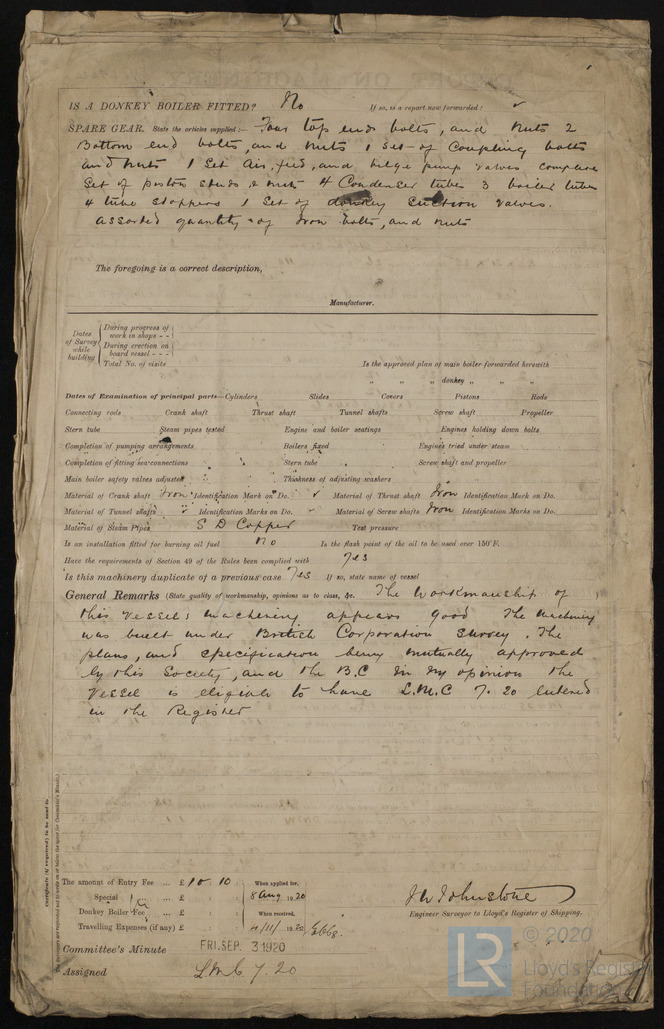 IS A DONKEY BOILER FITTED? No If so, is a report now forwarded?
SPARE GEAR. State the articles supplied:— Four top ends bolts, and nuts 2
Bottom end bolts, and nuts 1 set of Coupling bolts
and nuts 1 Set Air, feed, and bilge pump valves complete
Set of piston studs & nuts 4 Condenser tubes 3 boiler tubes
4 tube stoppers 1 Set of donkey suction valves.
Assorted quantity of Iron bolts, and nuts
The foregoing is a correct description,
Manufacturer.
Dates of Survey while building
During progress of work in shops - -
During erection on board vessel - - -
Total No. of visits
Is the approved plan of main boiler forwarded herewith
" " " donkey " " "
Dates of Examination of principal parts—Cylinders Slides Covers Pistons Rods
Connecting rods Crank shaft Thrust shaft Tunnel shafts Screw shaft Propeller
Stern tube Steam pipes tested Engine and boiler seatings Engines holding down bolts
Completion of pumping arrangements Boilers fixed Engines tried under steam
Completion of fitting sea connections Stern tube Screw shaft and propeller
Main boiler safety valves adjusted Thickness of adjusting washers
Material of Crank shaft Iron Identification Mark on Do. Material of Thrust shaft Iron Identification Mark on Do.
Material of Tunnel shafts Identification Marks on Do. Material of Screw shafts Iron Identification Marks on Do.
Material of Steam Pipes S D Copper Test pressure
Is an installation fitted for burning oil fuel No Is the flash point of the oil to be used over 150°F.
Have the requirements of Section 49 of the Rules been complied with Yes
Is this machinery duplicate of a previous case Yes If so, state name of vessel
General Remarks (State quality of workmanship, opinions as to class, &c. The Workmanship of
this Vessels machinery appears good The machinery
was built under British Corporation Survey. The
plans, and specification being mutually approved
by this Society, and the B.C In my opinion the
Vessel is eligible to have L.M.C 7.20 entered
in the Register
Certificate (if required) to be sent to
The amount of Entry Fee ... £ 10 . 10 When applied for,
Special ... £ 8 Aug 1920
Donkey Boiler Fee ... £ When received,
Travelling Expenses (if any) £ 4/11/1920
J W Johnstone
Engineer Surveyor to Lloyd's Register of Shipping.
Committee's Minute FRI. SEP. 3 1920
Assigned L.M.C 7.20
LR © 2020
Lloyd's Register
Foundation